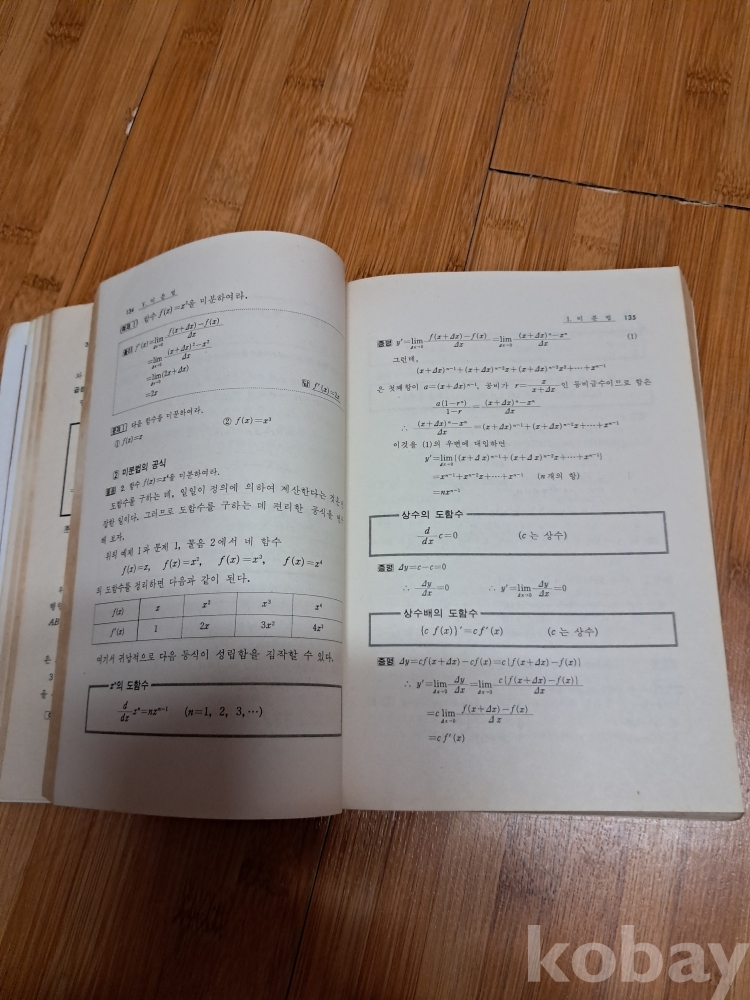 134 V. 미 분 법
예제 1 함수 f(x)=x²을 미분하여라.
풀이 f'(x)=lim_{Δx→0} \frac{f(x+Δx)-f(x)}{Δx}
=lim_{Δx→0} \frac{(x+Δx)²-x²}{Δx}
=lim_{Δx→0}(2x+Δx)
=2x
답 f'(x)=2x
문제 1 다음 함수를 미분하여라.
① f(x)=x ② f(x)=x³
② 미분법의 공식
물음 2. 함수 f(x)=x⁴을 미분하여라.
도함수를 구하는 데, 일일이 정의에 의하여 계산한다는 것은
잡한 일이다. 그러므로 도함수를 구하는 데 편리한 공식을
해 보자.
위의 예제 1과 문제 1, 물음 2에서 네 함수
f(x)=x, f(x)=x², f(x)=x³, f(x)=x⁴
의 도함수를 정리하면 다음과 같이 된다.
f(x) x x² x³ x⁴
f'(x) 1 2x 3x² 4x³
여기서 귀납적으로 다음 등식이 성립함을 짐작할 수 있다.
xⁿ의 도함수
\frac{d}{dx}xⁿ=nxⁿ⁻¹ (n=1, 2, 3, …)
1. 미 분 법 135
증명 y'=lim_{Δx→0} \frac{f(x+Δx)-f(x)}{Δx}=lim_{Δx→0} \frac{(x+Δx)ⁿ-xⁿ}{Δx} (1)
그런데,
(x+Δx)ⁿ⁻¹+(x+Δx)ⁿ⁻²x+(x+Δx)ⁿ⁻³x²+…+xⁿ⁻¹
은 첫째항이 a=(x+Δx)ⁿ⁻¹, 공비가 r=\frac{x}{x+Δx} 인 등비급수이므로 합은
\frac{a(1-rⁿ)}{1-r}=\frac{(x+Δx)ⁿ-xⁿ}{Δx}
∴ \frac{(x+Δx)ⁿ-xⁿ}{Δx}=(x+Δx)ⁿ⁻¹+(x+Δx)ⁿ⁻²x+…+xⁿ⁻¹
이것을 (1)의 우변에 대입하면
y'=lim_{Δx→0}{(x+Δx)ⁿ⁻¹+(x+Δx)ⁿ⁻²x+…+xⁿ⁻¹}
=xⁿ⁻¹+xⁿ⁻²x+…+xⁿ⁻¹ (n개의 항)
=nxⁿ⁻¹
상수의 도함수
\frac{d}{dx}c=0 (c 는 상수)
증명 Δy=c-c=0
∴ \frac{Δy}{Δx}=0 ∴ y'=lim_{Δx→0} \frac{Δy}{Δx}=0
상수배의 도함수
{c f(x)}'=cf'(x) (c 는 상수)
증명 Δy=cf(x+Δx)-cf(x)=c{f(x+Δx)-f(x)}
∴ y'=lim_{Δx→0} \frac{Δy}{Δx}=lim_{Δx→0} \frac{c{f(x+Δx)-f(x)}}{Δx}
=c lim_{Δx→0} \frac{f(x+Δx)-f(x)}{Δx}
=cf'(x)
kobay